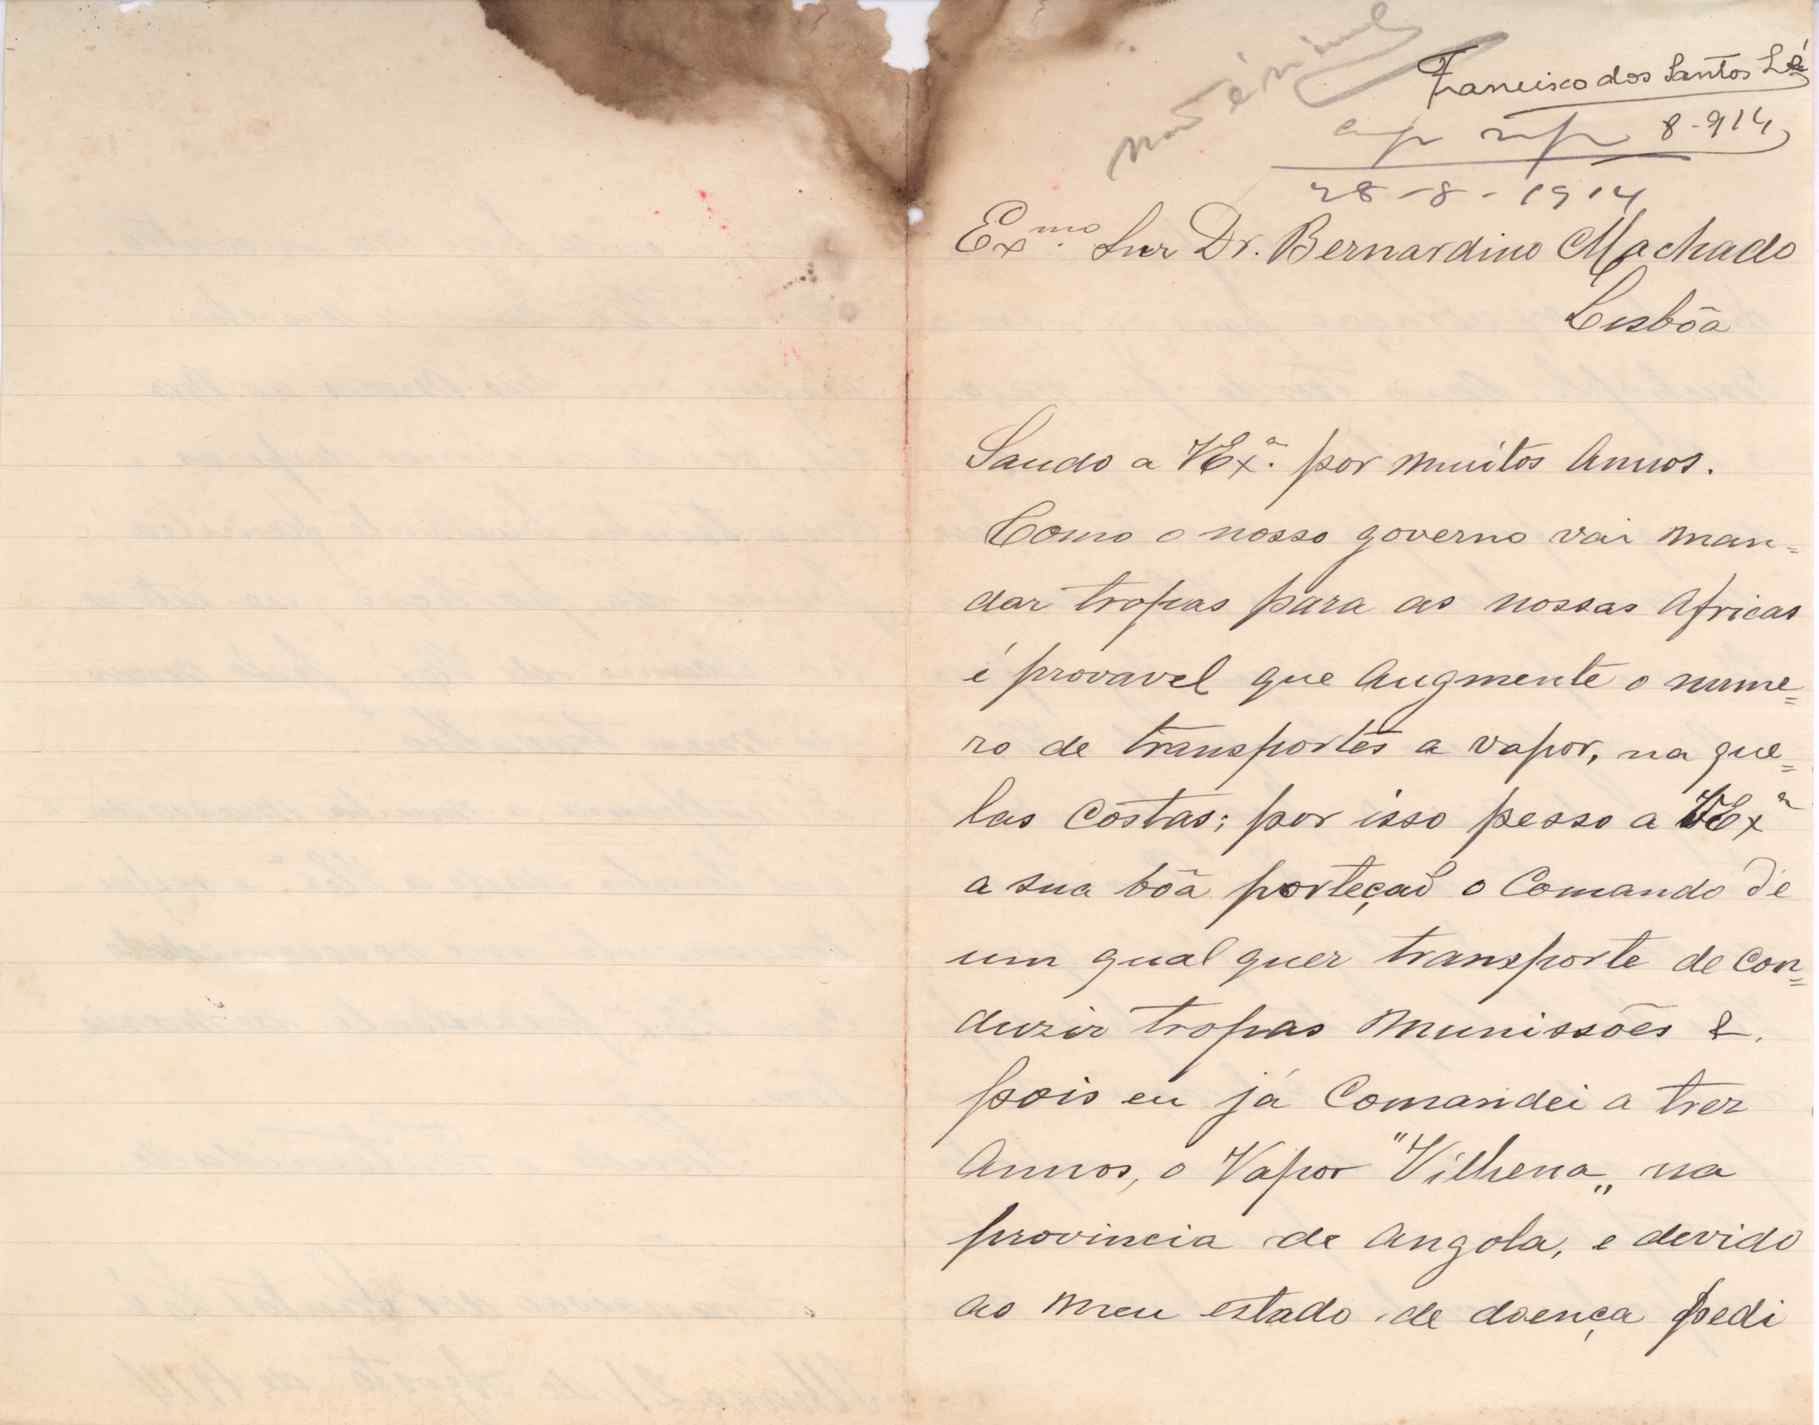 não é
Francisco dos Santos Lé
8-914
28-8-1914
Exmo. Snr Dr. Bernardino Machado
Lisbôa
Saudo a VExª. por muitos Annos.
Como o nosso governo vai man=
dar tropas para as nossas Africas
é provavel que Augmente o nume=
ro de transportes a vapor, na que=
las Costas; por isso pesso a VExª
a sua bôa porteçaõ o Comando de
um qual quer transporte de Con=
duzir tropas Munissões &.
pois eu já Comandei a trez
Annos, o Vapor "Vilhena„ na
provincia de Angola, e devido
ao meu estado de doença pedi